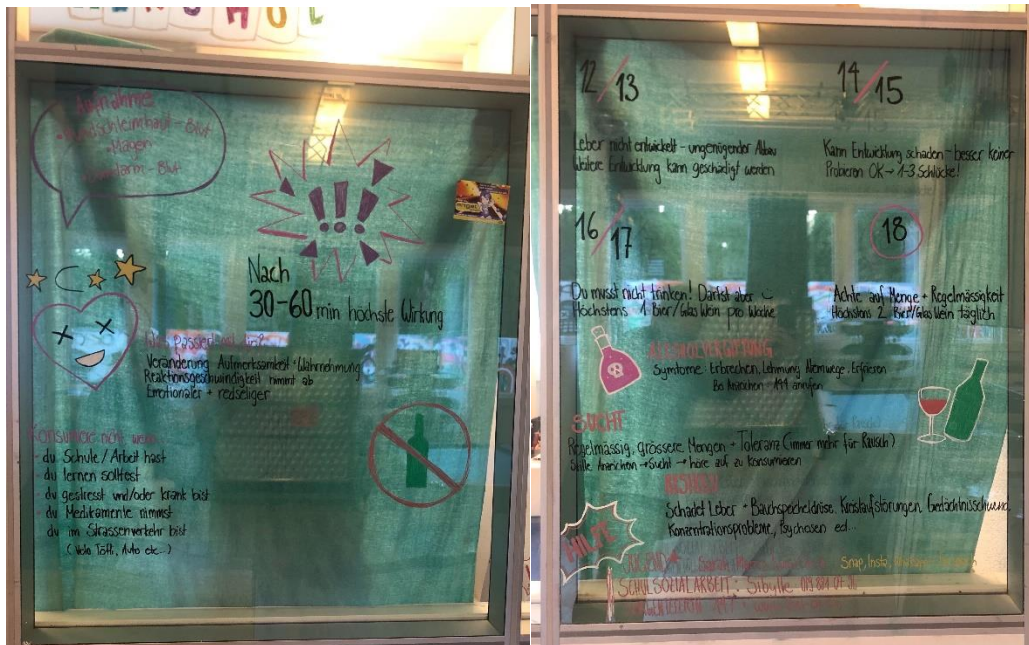 Aufnahme
Mundschleimhaut - Blut
Magen
Dünndarm - Blut
!!!
Nach
30-60 min höchste Wirkung
Was passiert mit dir?
Veränderung Aufmerksamkeit + Wahrnehmung
Reaktionsgeschwindigkeit nimmt ab
Emotionaler + redseliger
Konsumiere nicht wenn
- du Schule / Arbeit hast
- du lernen solltest
- du gestresst und/oder krank bist
- du Medikamente nimmst
- du im Strassenverkehr bist
(Velo Töffli, Auto etc...)
12/13
Leber nicht entwickelt - ungenügender Abbau
Weitere Entwicklung kann geschädigt werden
14/15
Kann Entwicklung schaden - besser keiner
Probieren OK → 1-3 Schlücke!
16/17
Du musst nicht trinken! Darfst aber
Höchstens 1 Bier/Glas Wein pro Woche
18
Achte auf Menge + Regelmässigkeit
Höchstens 2 Bier/Glas Wein täglich
ALKOHOLVERGIFTUNG
Symtome: Erbrechen, Lähmung Atemwege, Erfrieren
Bei Anzeichen 144 anrufen
SUCHT
Regelmässig, grössere Mengen + Toleranz (immer mehr für Rausch)
Anzeichen → Sucht → höre auf zu konsumieren
Schadet Leber + Bauchspeicheldrüse, Kreislaufstörungen, Gedächtnisschwund,
Konzentrationsprobleme, Psychosen
HILFE
JUGEND
Snap, Insta,
SCHULSOZIALARBEIT: Sibylle